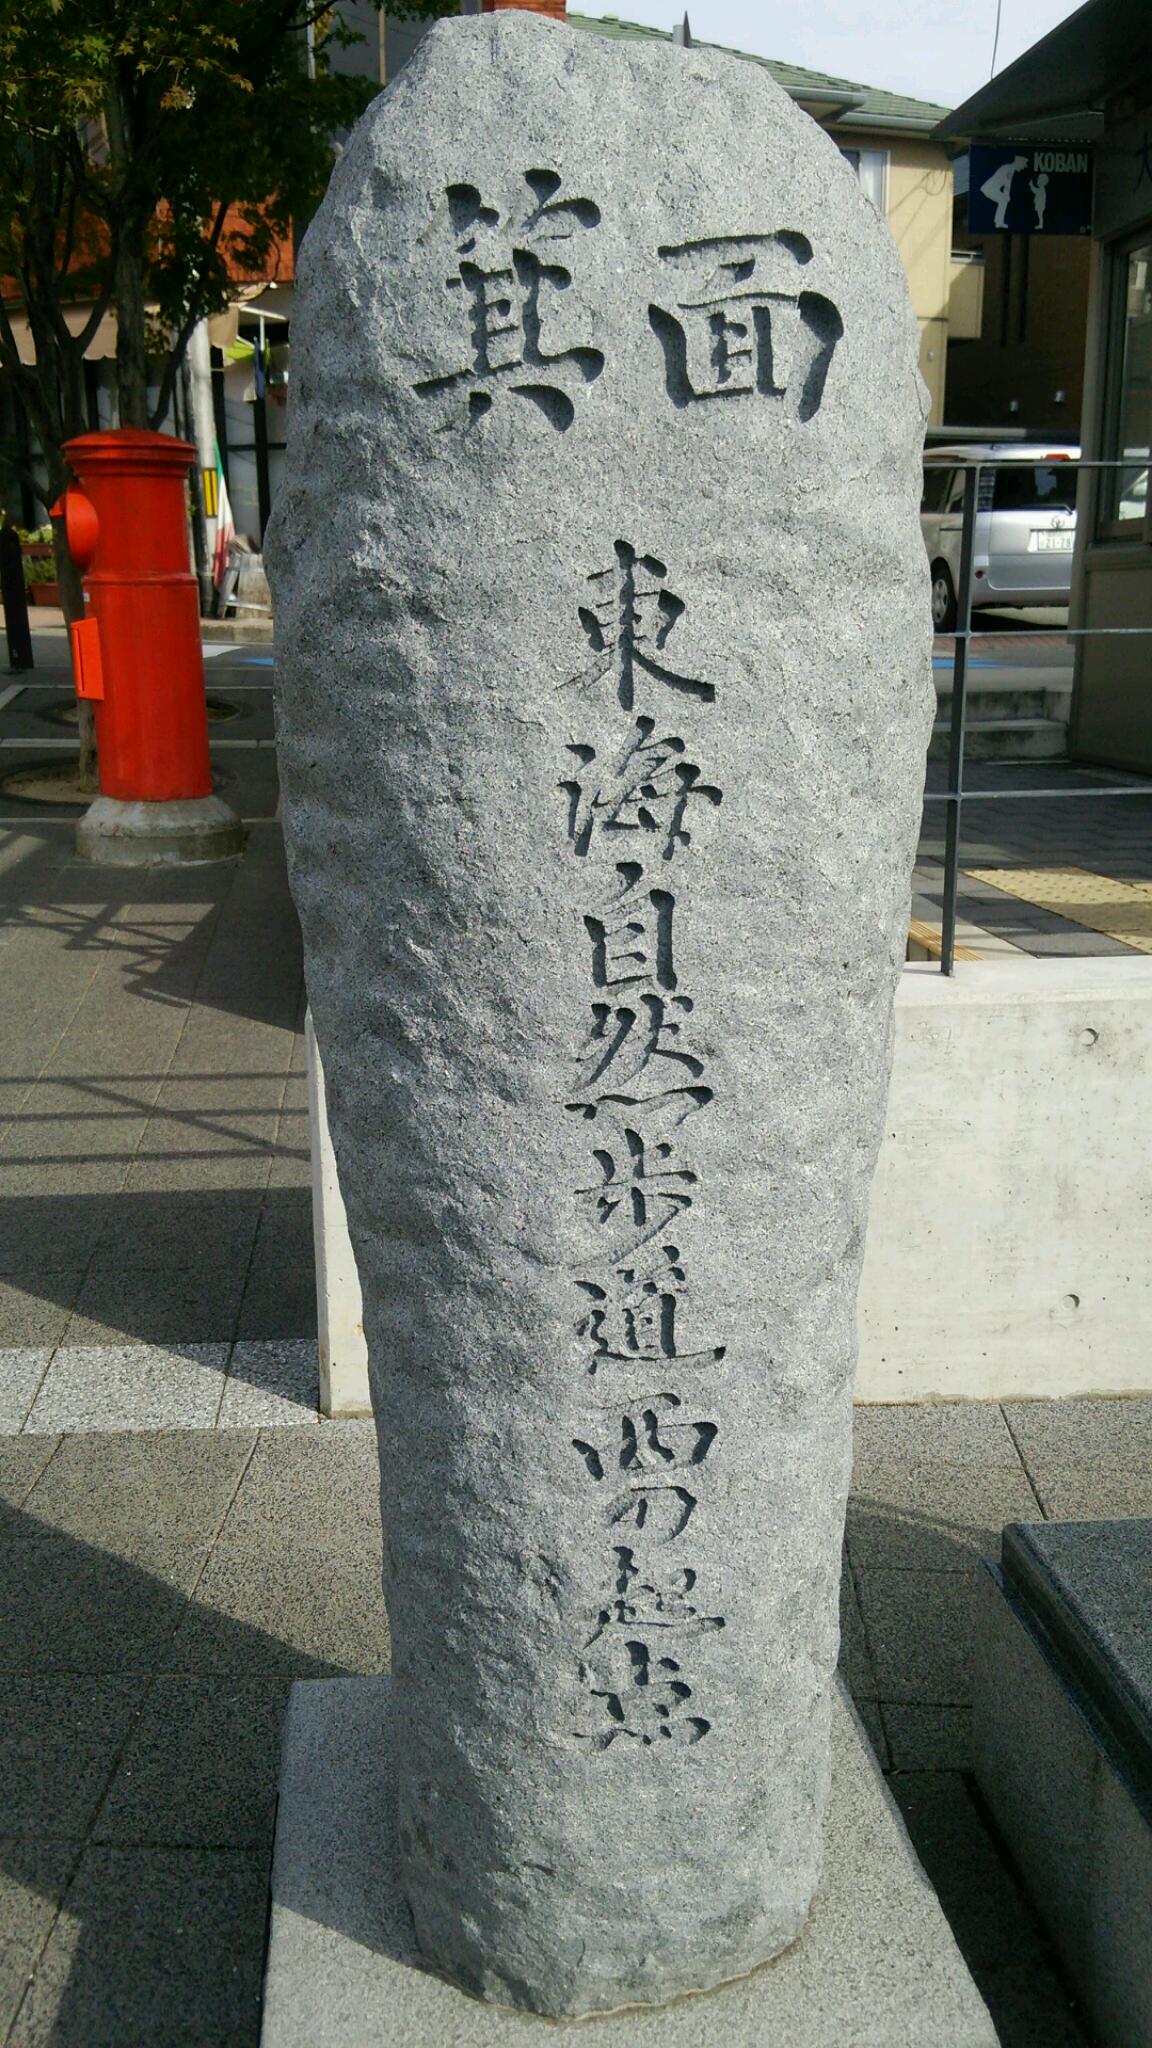 箕面
東海自然歩道西の起点
KOBAN